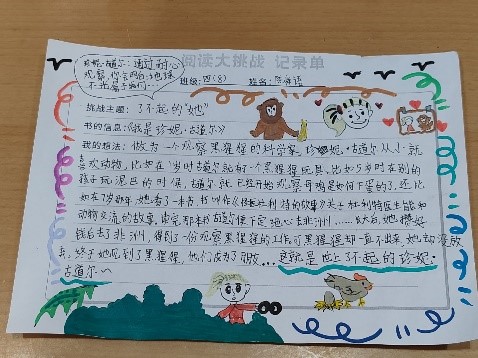 珍妮·古道尔：通过耐心
观察，你会明白：地球
不光属于我们…
阅读大挑战 记录单
班级：四(8) 姓名：
挑战主题：了不起的“她”
书的信息：《我是珍妮·古道尔》
我的想法：做为一个观察黑猩猩的科学家，珍妮·古道尔从小就
喜欢动物，比如在1岁时古道尔就有一个黑猩猩玩具，比如5岁时在别的
孩子玩泥巴的时候，古道尔就已经开始观察母鸡是如何下蛋的，还比
如在7岁那年，她看了一本书，书叫作《杜立德的故事》关于杜利特医生能和
动物交流的故事，读完那本书古道尔便下定决心去非洲……成年后，她攒好
钱后去了非洲，得到了一份观察黑猩猩的工作，可黑猩猩却一直不出来，她却没放
弃，终于她见到了黑猩猩，他们成为了朋友…这就是了不起的珍妮·
古道尔~